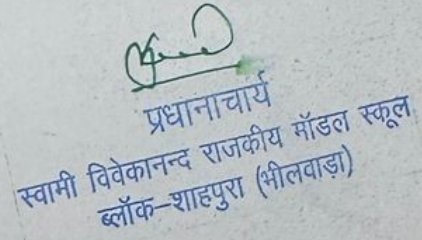 प्रधानाचार्य
स्वामी विवेकानन्द राजकीय मॉडल स्कूल
ब्लॉक-शाहपुरा (भीलवाड़ा)